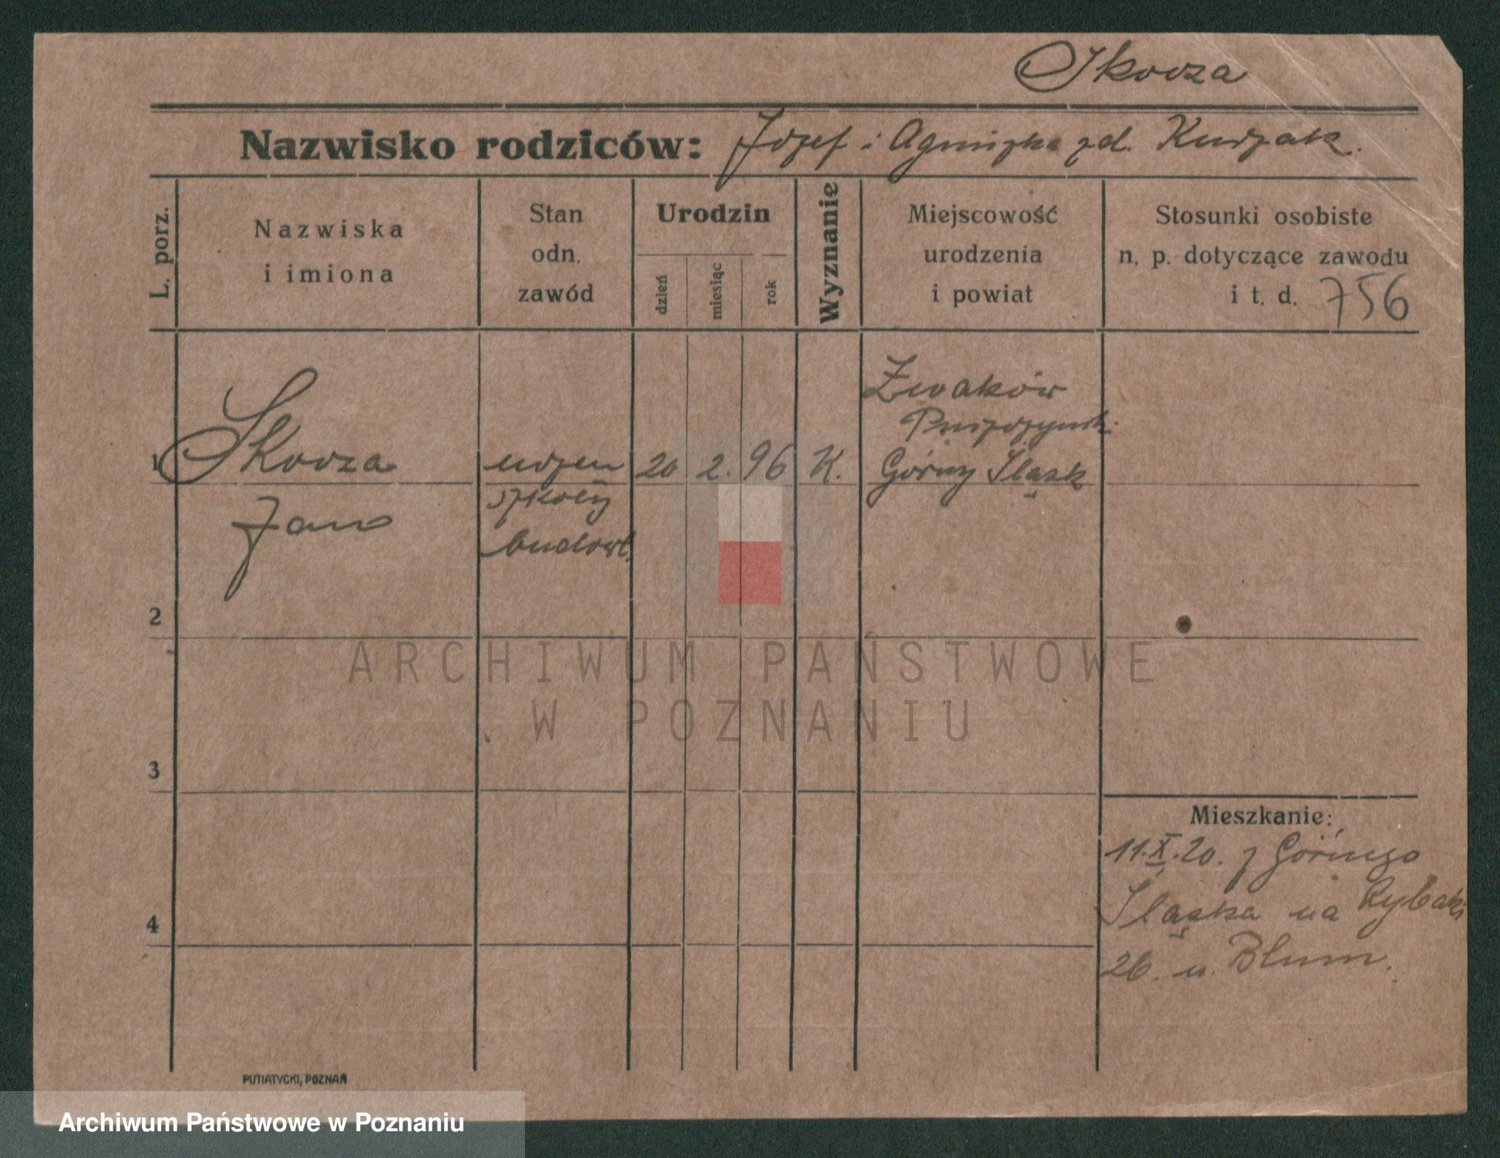 Skorza
Nazwisko rodziców: Józef i Agnieszka zd.
L. porz.
Nazwiska
i imiona
Stan
odn.
zawód
Urodzin
dzień
miesiąc
rok
Wyznanie
Miejscowość
urodzenia
i powiat
Stosunki osobiste
n. p. dotyczące zawodu
i t. d. 756
1
Skorza
Jan
uczeń
szkoły
budowl.
20 2. 96 K.
Żwaków
Górny Śląsk
2
3
4
Mieszkanie:
11.X.20. z Górnego
Śląska na Rybaki
26. u. Blum.
PUTIATYCKI, POZNAŃ
ARCHIWUM PAŃSTWOWE
W POZNANIU
Archiwum Państwowe w Poznaniu